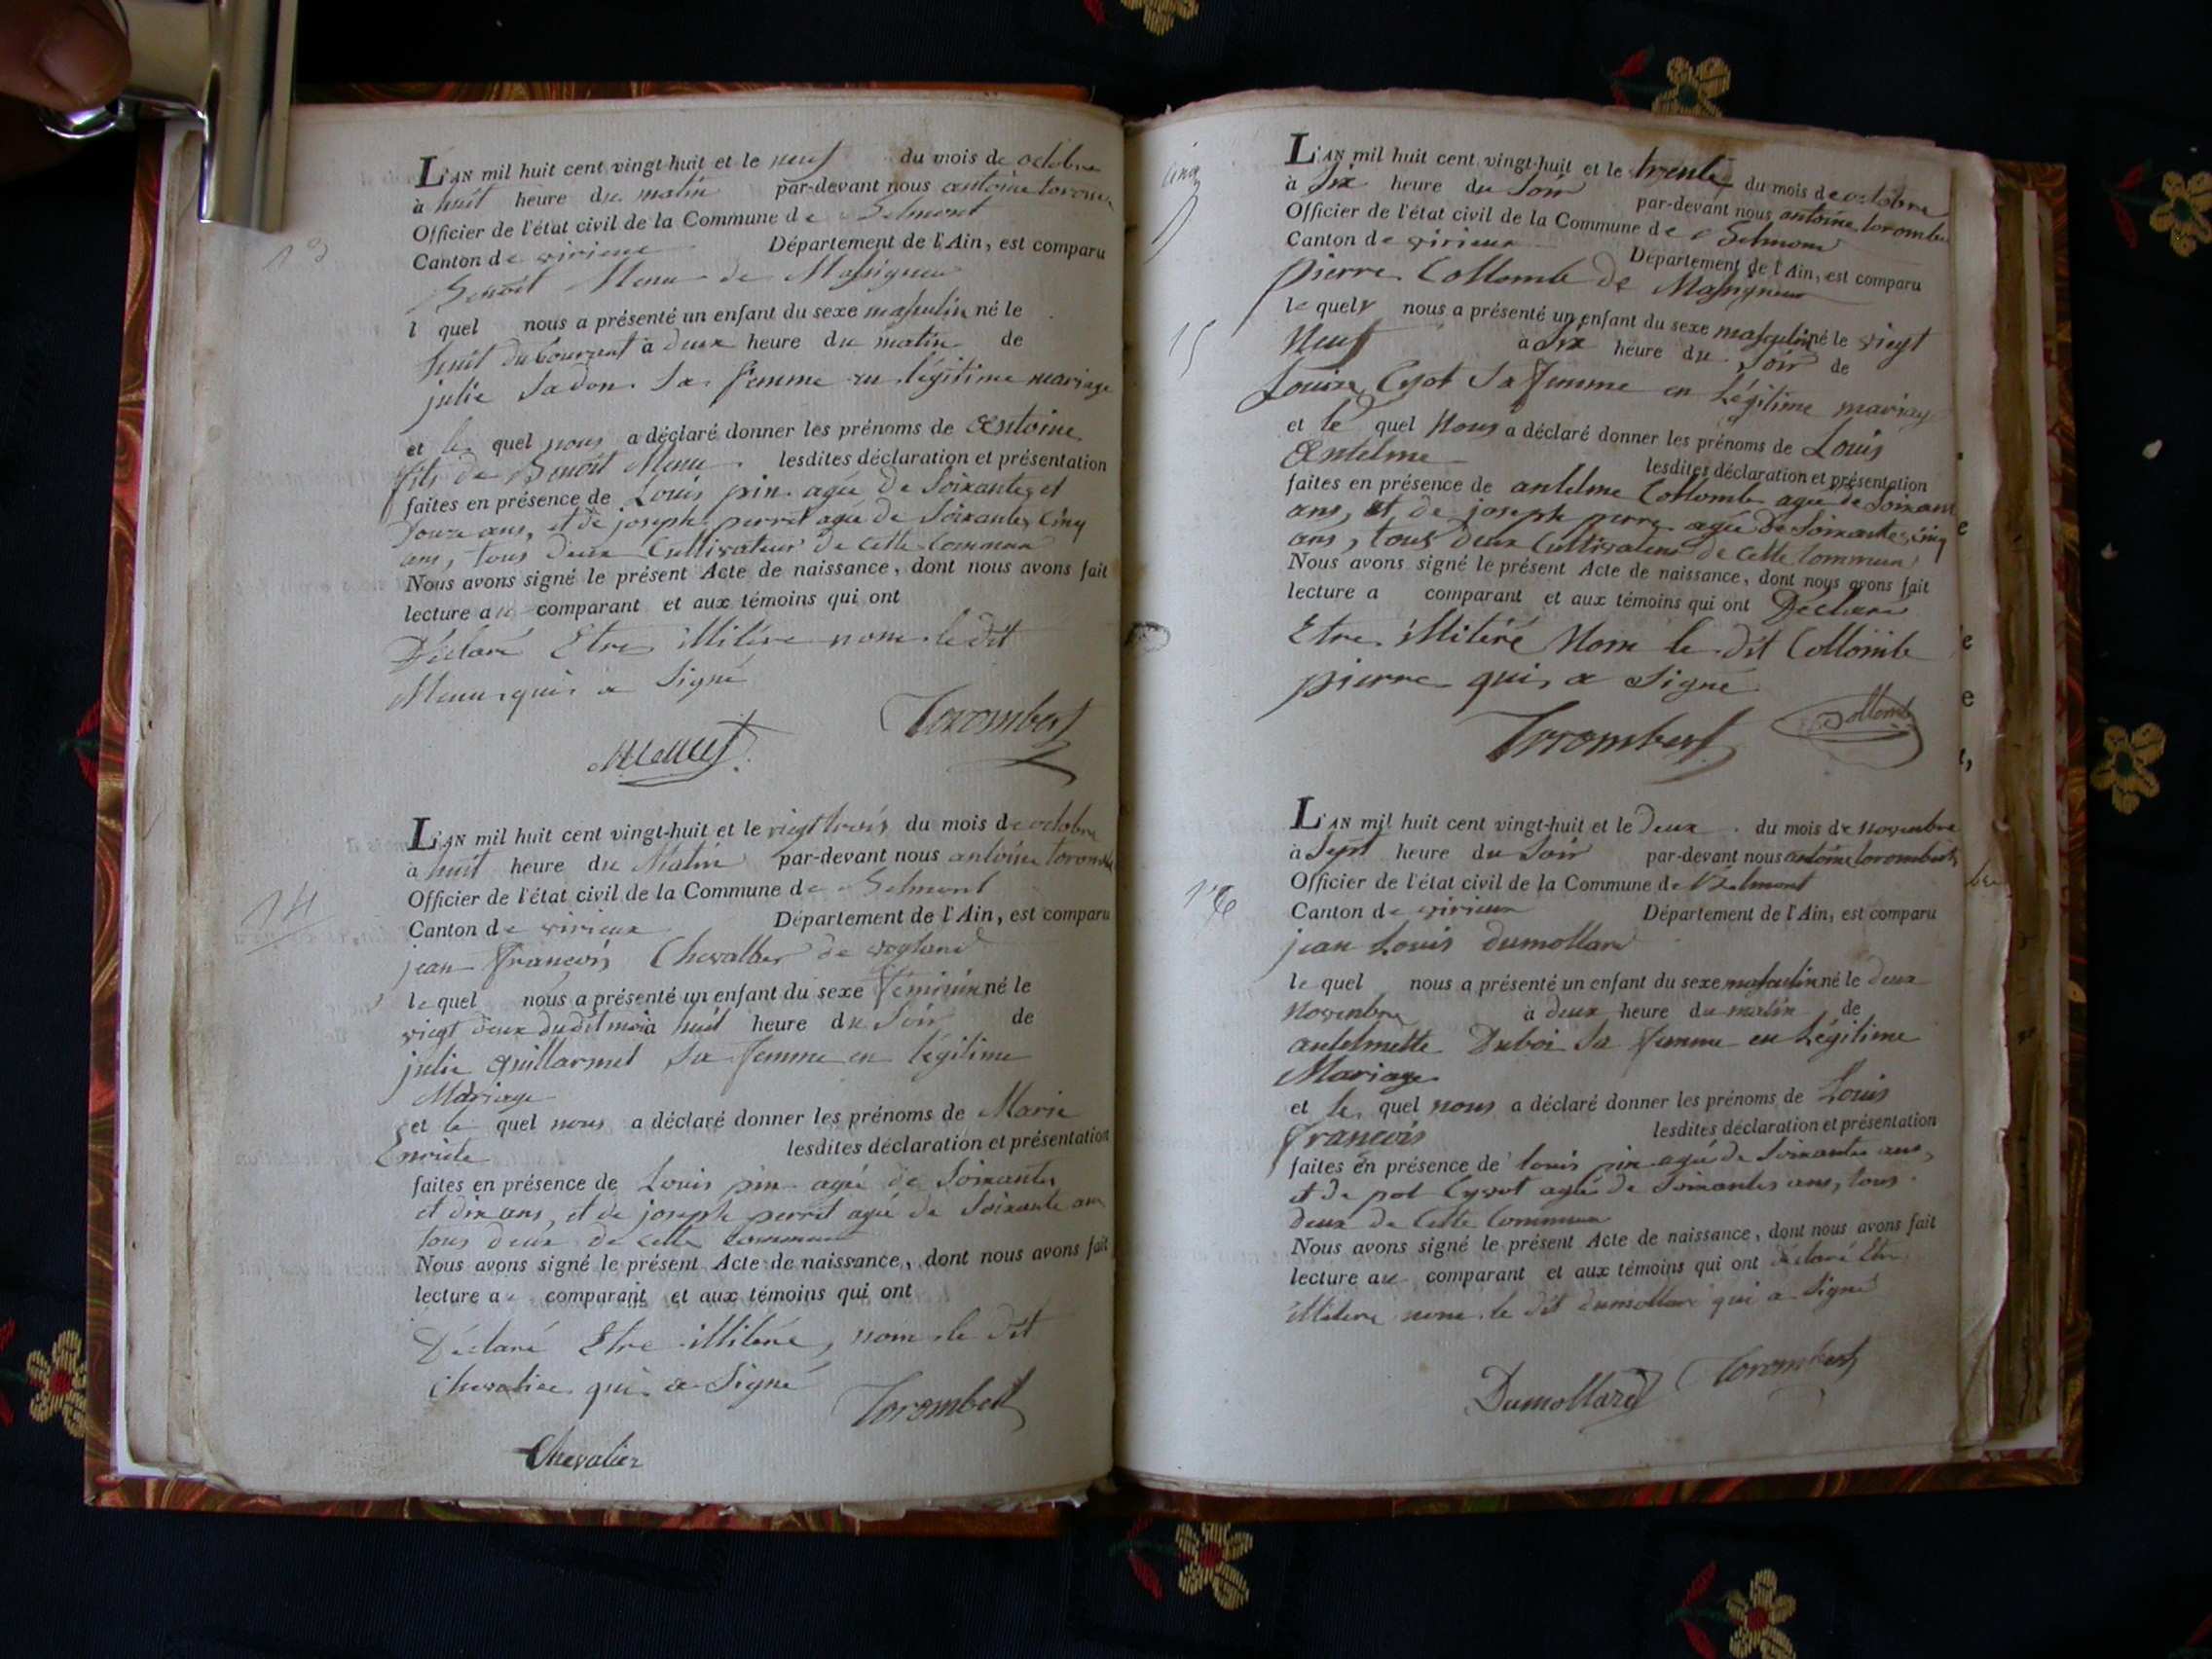 13
L'AN mil huit cent vingt-huit et le neuf du mois de octobre
à huit heure du matin par-devant nous antoine
Officier de l'état civil de la Commune de Belmont
Canton de virieux Département de l'Ain, est comparu
Benoit Menu de Massigneu
l quel nous a présenté un enfant du sexe masculin né le
huit du Courant à deux heure du matin de
julie Sadon Sa femme en légitime mariage
et le quel nous a déclaré donner les prénoms de Antoine
fils de Benoit Menu lesdites déclaration et présentation
faites en présence de Louis pin agée de Soixantes et
Douze ans, et de joseph perret agée de Soixantes Cinq
ans, tous deux Cultivateur de cette Commune
Nous avons signé le présent Acte de naissance, dont nous avons fait
lecture au comparant et aux témoins qui ont
Déclaré Etre illitéré nom le dit
Menu qui a Signé
Torombert
14
L'AN mil huit cent vingt-huit et le vingt trois du mois de octobre
à huit heure du Matin par-devant nous antoine
Officier de l'état civil de la Commune de Belmont
Canton de virieux Département de l'Ain, est comparu
jean François Chevallier de
le quel nous a présenté un enfant du sexe féminin né le
vingt deux du dit mois à huit heure du Soir de
julie guillarmet Sa femme en légitime
Mariage
et le quel nous a déclaré donner les prénoms de Marie
lesdites déclaration et présentation
faites en présence de Louis pin agée de Soixantes
et dix ans, et de joseph perret agée de Soixante ans
tous deux de cette Commune
Nous avons signé le présent Acte de naissance, dont nous avons fait
lecture au comparant et aux témoins qui ont
Déclaré Etre illitéré, nom le dit
Chevalier qui a Signé
Torombert
Chevalier
cinq
15
L'AN mil huit cent vingt-huit et le trente du mois de octobre
à Six heure du Soir par-devant nous antoine
Officier de l'état civil de la Commune de Belmont
Canton de virieux Département de l'Ain, est comparu
pierre Collomb de Massigneu
le quel nous a présenté un enfant du sexe masculin né le vingt
Neuf à Six heure du Soir de
Louise Cyot Sa femme en Légitime mariage
et le quel Nous a déclaré donner les prénoms de Louis
Antelme lesdites déclaration et présentation
faites en présence de antelme Collomb agée de Soixante
ans, et de joseph perret agée de Soixantes Cinq
ans, tous deux Cultivateur de cette Commune
Nous avons signé le présent Acte de naissance, dont nous avons fait
lecture a comparant et aux témoins qui ont Déclaré
Etre illitéré Nom le dit Collomb
pierre qui a Signé
Torombert Collomb
16
L'AN mil huit cent vingt-huit et le Deux du mois de Novembre
à Sept heure du Soir par-devant nous antoine torombert
Officier de l'état civil de la Commune de Belmont
Canton de virieux Département de l'Ain, est comparu
jean Louis dumollard
le quel nous a présenté un enfant du sexe masculin né le deux
Novembre à deux heure du matin de
antelmette Duboi Sa femme en Légitime
Mariage
et le quel nous a déclaré donner les prénoms de Louis
François lesdites déclaration et présentation
faites en présence de louis pin agée de Soixantes ans,
et de agée de Soixantes ans, tous
deux de Cette Commune
Nous avons signé le présent Acte de naissance, dont nous avons fait
lecture au comparant et aux témoins qui ont déclaré Etre
illitéré nom le dit dumollard qui a Signé
Dumollard Torombert